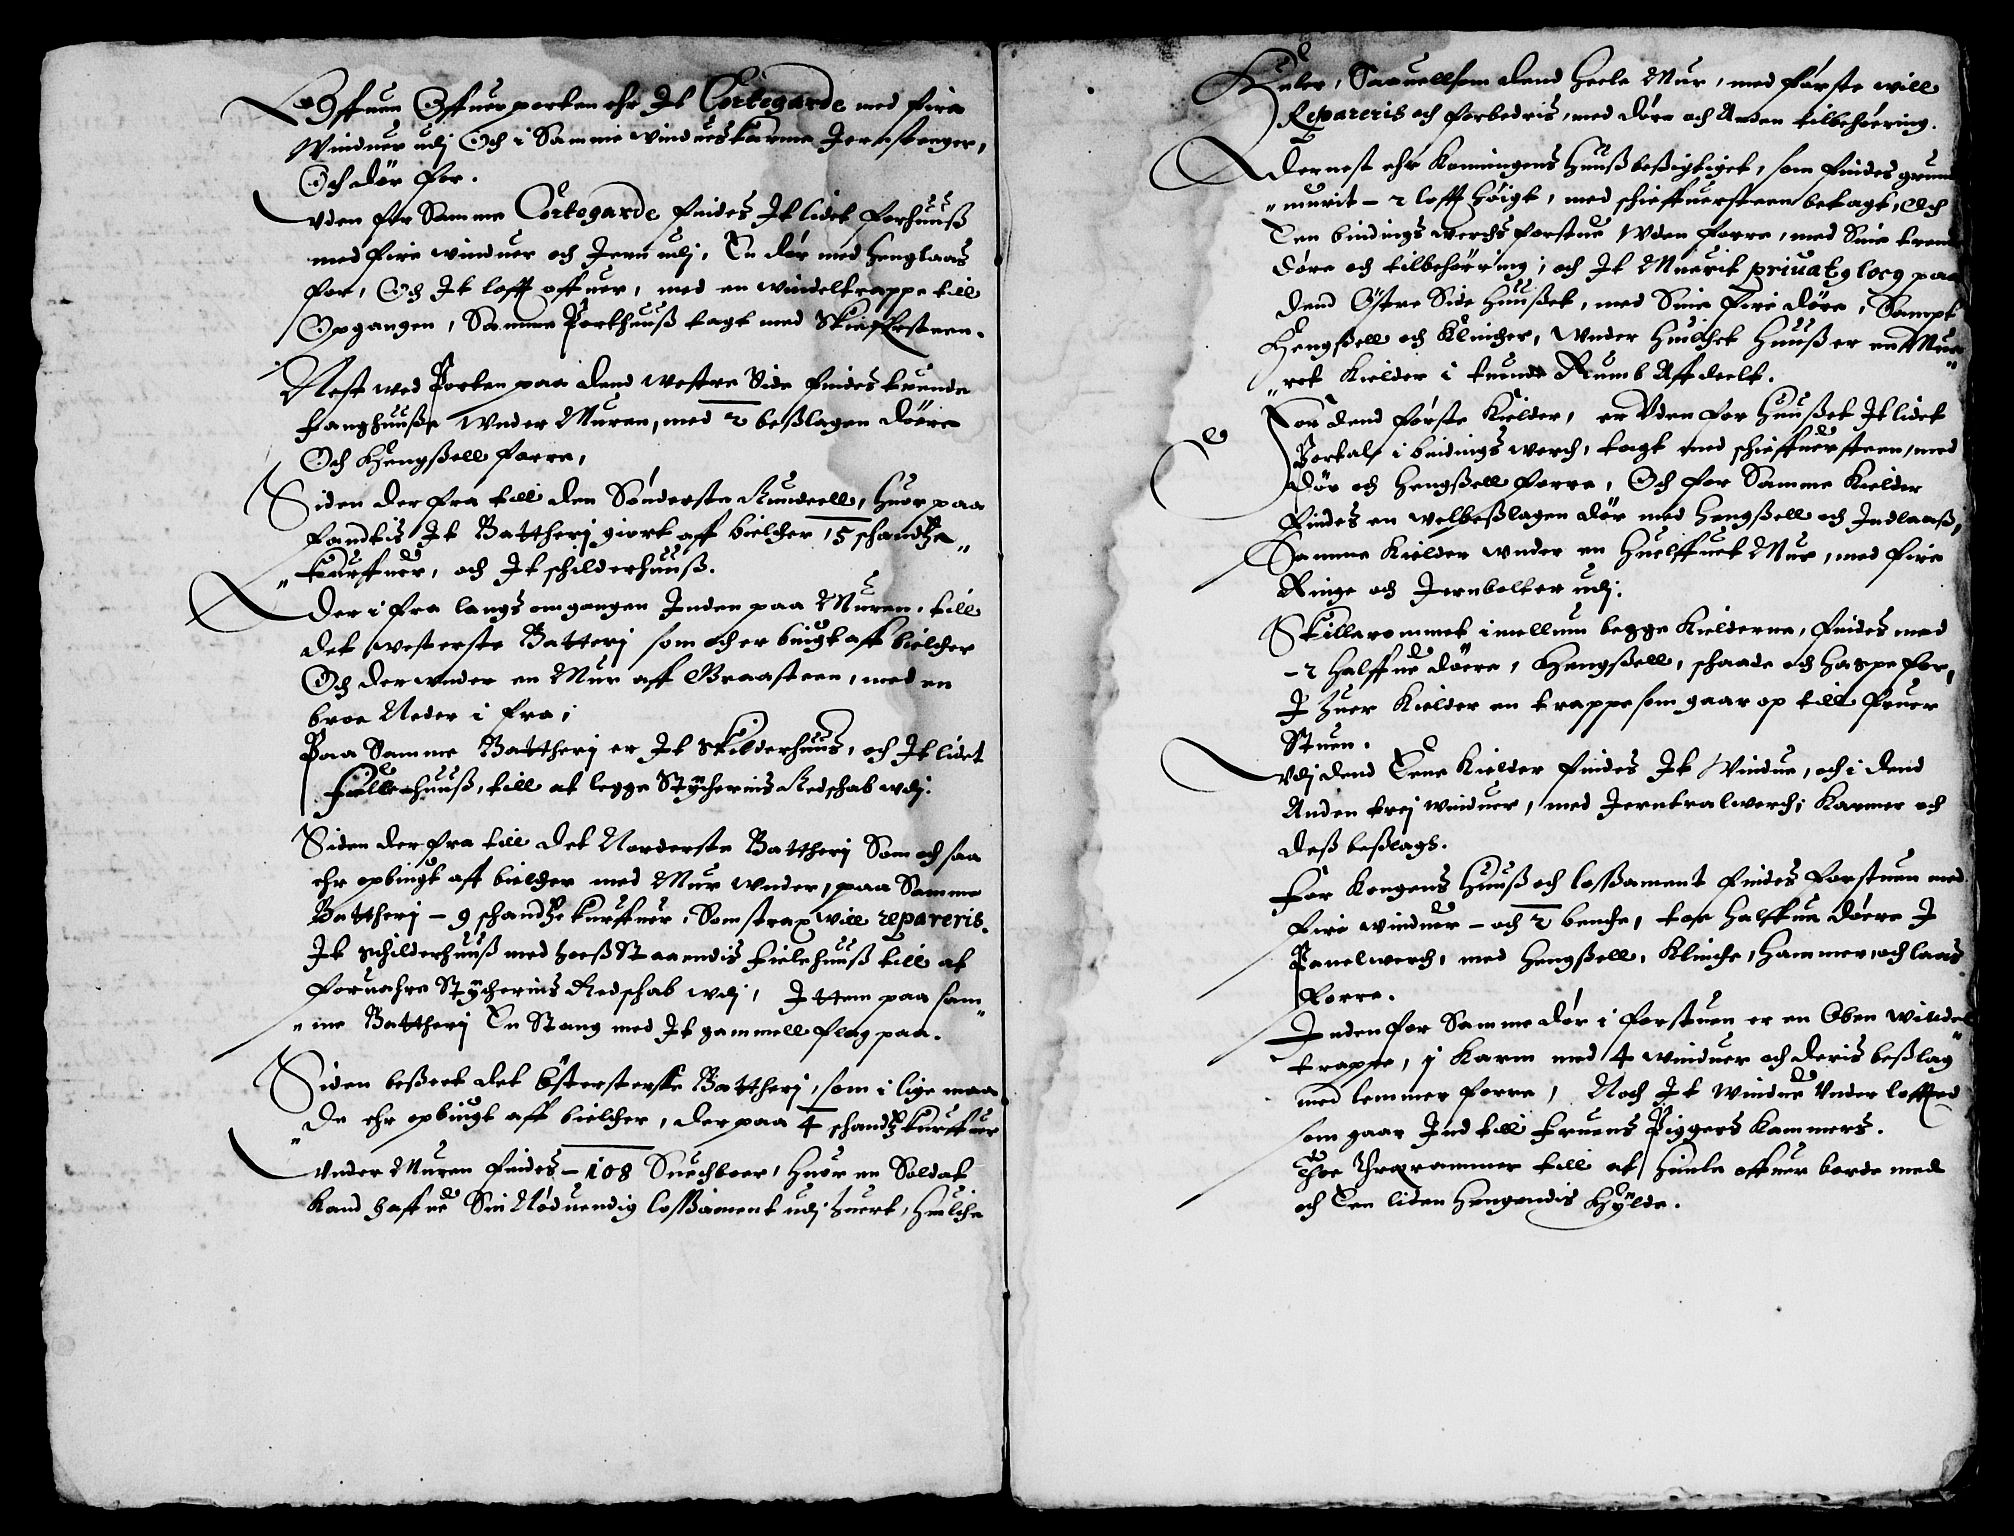 Offuen Offuer porten ehr It Cortegarde med fire
Winduer udj Och i Samme windueskarme Jernstenger,
Och dør for.
Vden for Samme Cortegarde findes It lidet forhuuß
med fire winduer och Jern udj, En dør med Henglaas
for, Och It lofft offuer, med en windeltrappe till
Opgangen, Samme Porthuuß tagt med Skieffersteen.
Nest wed Porten paa dend westre Side findes tuende
fanghuuße wnder Muren, med 2 beßlagen døere
Och Hengßell forre,
Siden der fra till den Sønderste Rundeell, huor paa
fandtis It Battherj giort aff bielcher 15 schandtze
kurffuer, och It schilderhuuß.
Der i fra langs omgangen Inden paa Muren, till
det westerste Batterj som och er bugt aff bielcher
Och der wnder en Mur aff Graasteen, med en
broe Neder i fra,
Paa Samme Battherj er It Skilderhuus, och It lidet
fiellehuuß, till at legge Stycherins Redschab wdj.
Siden der fra till det Norderste Battherj Som och saa
ehr opbugt aff bielcher med Mur wnder, paa Samme
Battherj - 9 schandtze kurffuer, Som strax will repareris.
It schilderhuuß med hoeß Staaendis fielehuuß till at
foruahre Stycherins Redschab wdj, Ittem paa sam
me Battherj En Stang med It gammell flag paa.
Siden beßeet det Østersterste Battherj, som i lige maa
de ehr opbugt aff bielcher, der paa 4 schandtzkurffuer
Vnder Muren findes - 108 Suechboer, huor en Soldat
kand haffue Sin Nøduendig loßament udj huert, huilche
Huler, Saauellsom dend heele Mur, med første will
Repareris och forbedris, med døre och Anden tilbehøering.
Dernest ehr Konningens Huuß beßigtiget, som findes grund
murit - 2 lofft høigt, med schieffuersteen betagt, Och
Een bindings werchs forstue Vden forre, med Sine trende
døre och tilbehøering, och It Muerit privat locum paa
dend Østre Side huußet, med Sine fire døre, Sampt
Hengßell och Klincher, Wnder huilchet Huuß er en Mue
ret Kielder i tuende Rumb Affdeelt.
For dend første Kielder, er Vden for huußet It lidet
Portals i bindings werch, tagt med schieffuersteen, med
dør och hengßell forre, Och for Samme Kielder
findes en welbeßlagen dør med Hengßell och Indlaaß,
Samme Kielder wnder en huelffuet Mur, med fire
Ringe och Jernbolter udj.
Skillerommet imellum begge Kielderne, findes med
- 2 halffue døere, Hengßell, schaade och haspe for,
I huer Kielder en trappe som gaar op till fruer
Stuen.
Vdj dend Eene Kielder findes It Windue, och i dend
Anden trej winduer, med Jerntralwerch, Karmer och
deß beßlags.
For Kongens Huuß och loßament findes forstuen med
fire winduer - och 2 benche, toe halffue døere I
Panelwerch, med Hengßell, Klinche, Hammer, och laas
forre.
Inden for Samme dør i forstuen er en Oben windel
trappe, j karm med 4 winduer och deris beßlag
med lemmer forre, Noch It Windue Vnder lofftet
som gaar Ind till fruens Piggers kammers.
Thoe till at hiule offuer borde med
och Een liden Hengendis Hylde.